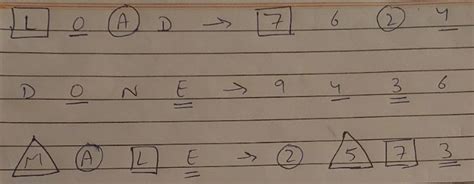 L O A D → 7 6 2 4
D O N E → 9 4 3 6
M A L E → 2 5 7 3